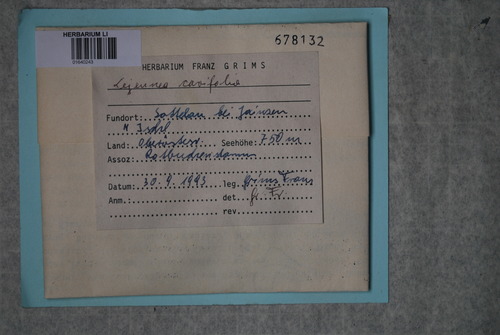 HERBARIUM LI
678132
HERBARIUM FRANZ GRIMS
Lejeunea cavifolia
Fundort: bei Jainzen
Ischl
Land: Oberösterr. Seehöhe: 750 m
Assoz:
Datum: 30.9.1993 leg. Grims Franz
Anm.: det. Gr. Fr.
rev.